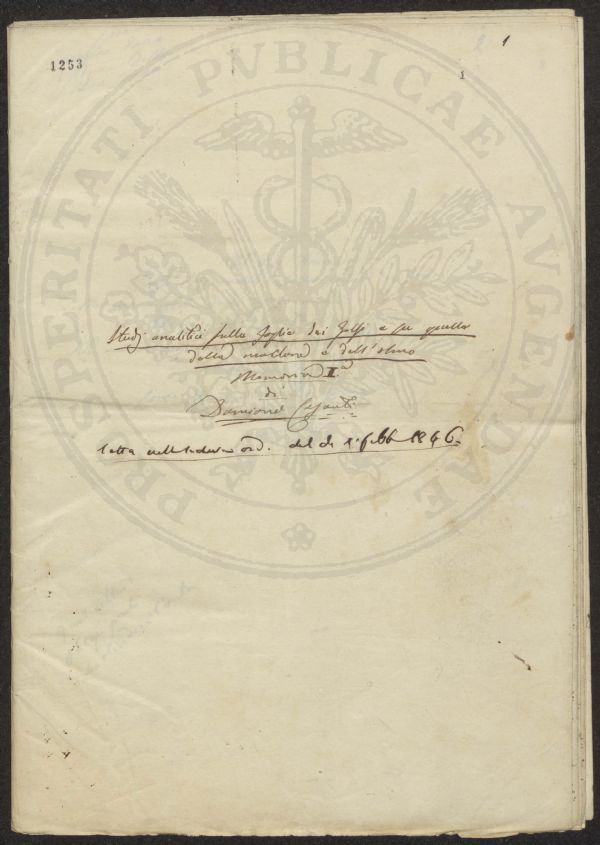 1253
1
1
PROSPERITATI PVBLICAE AVGENDAE
Studj analitici sulla foglia dei Gelsi e su quella
della maclura e dell'olmo
Memoria I.a
di
Damiano Casanti
letta nell'adunanza ord. del dì 1° febb 1846.